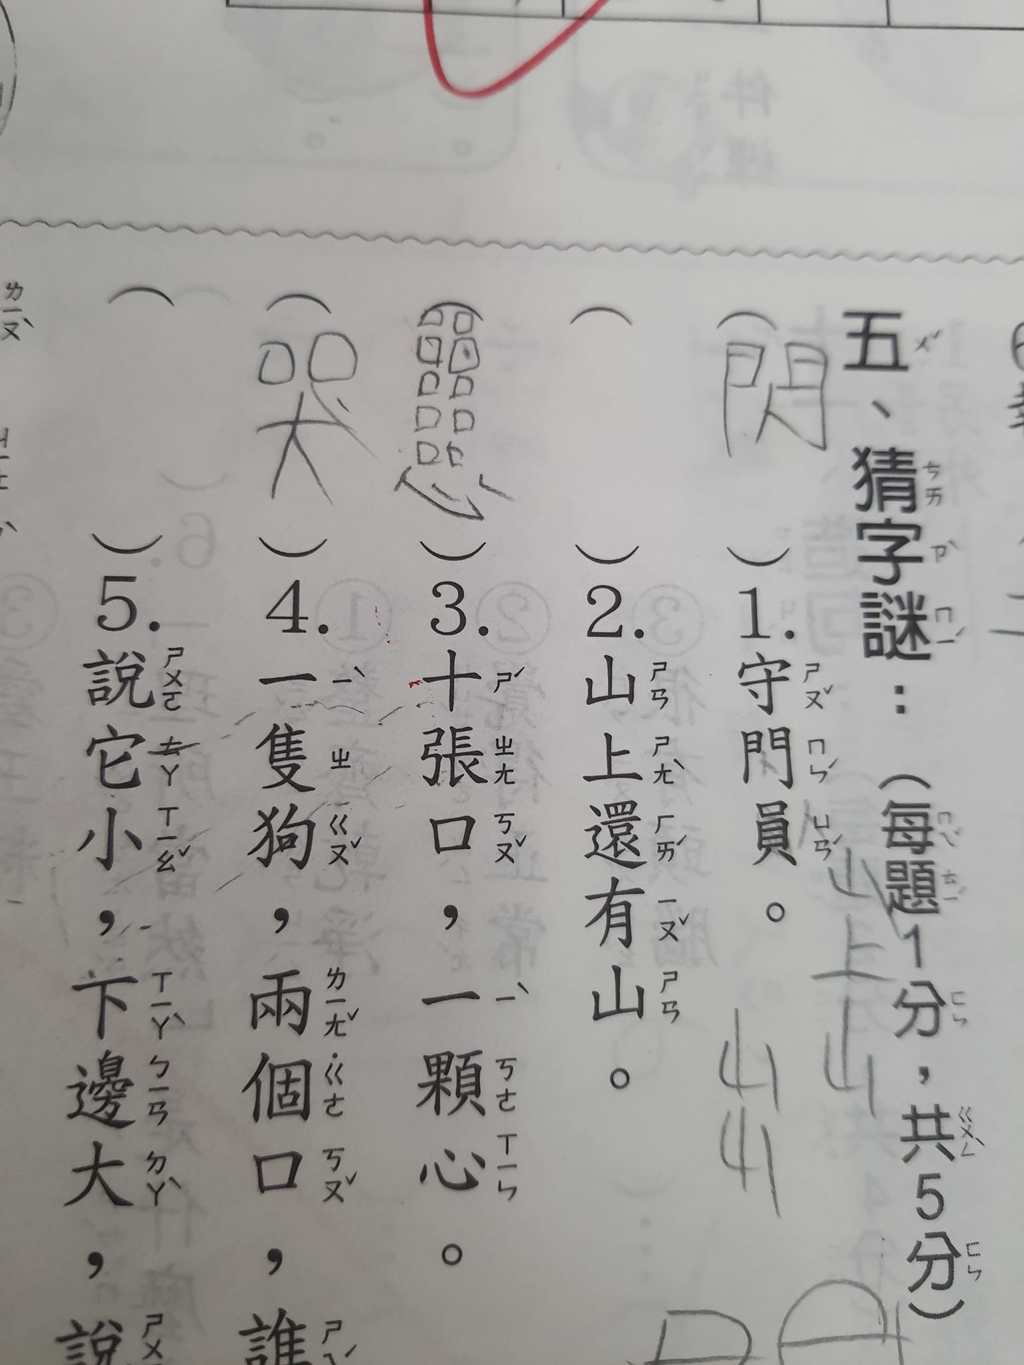 五、猜字謎：（每題1分，共5分）
（閃）1.守門員。
（ ）2.山上還有山。
山上山
山山
（ ）3.十張口，一顆心。
（哭）4.一隻狗，兩個口，誰
（ ）5.說它小，下邊大，說